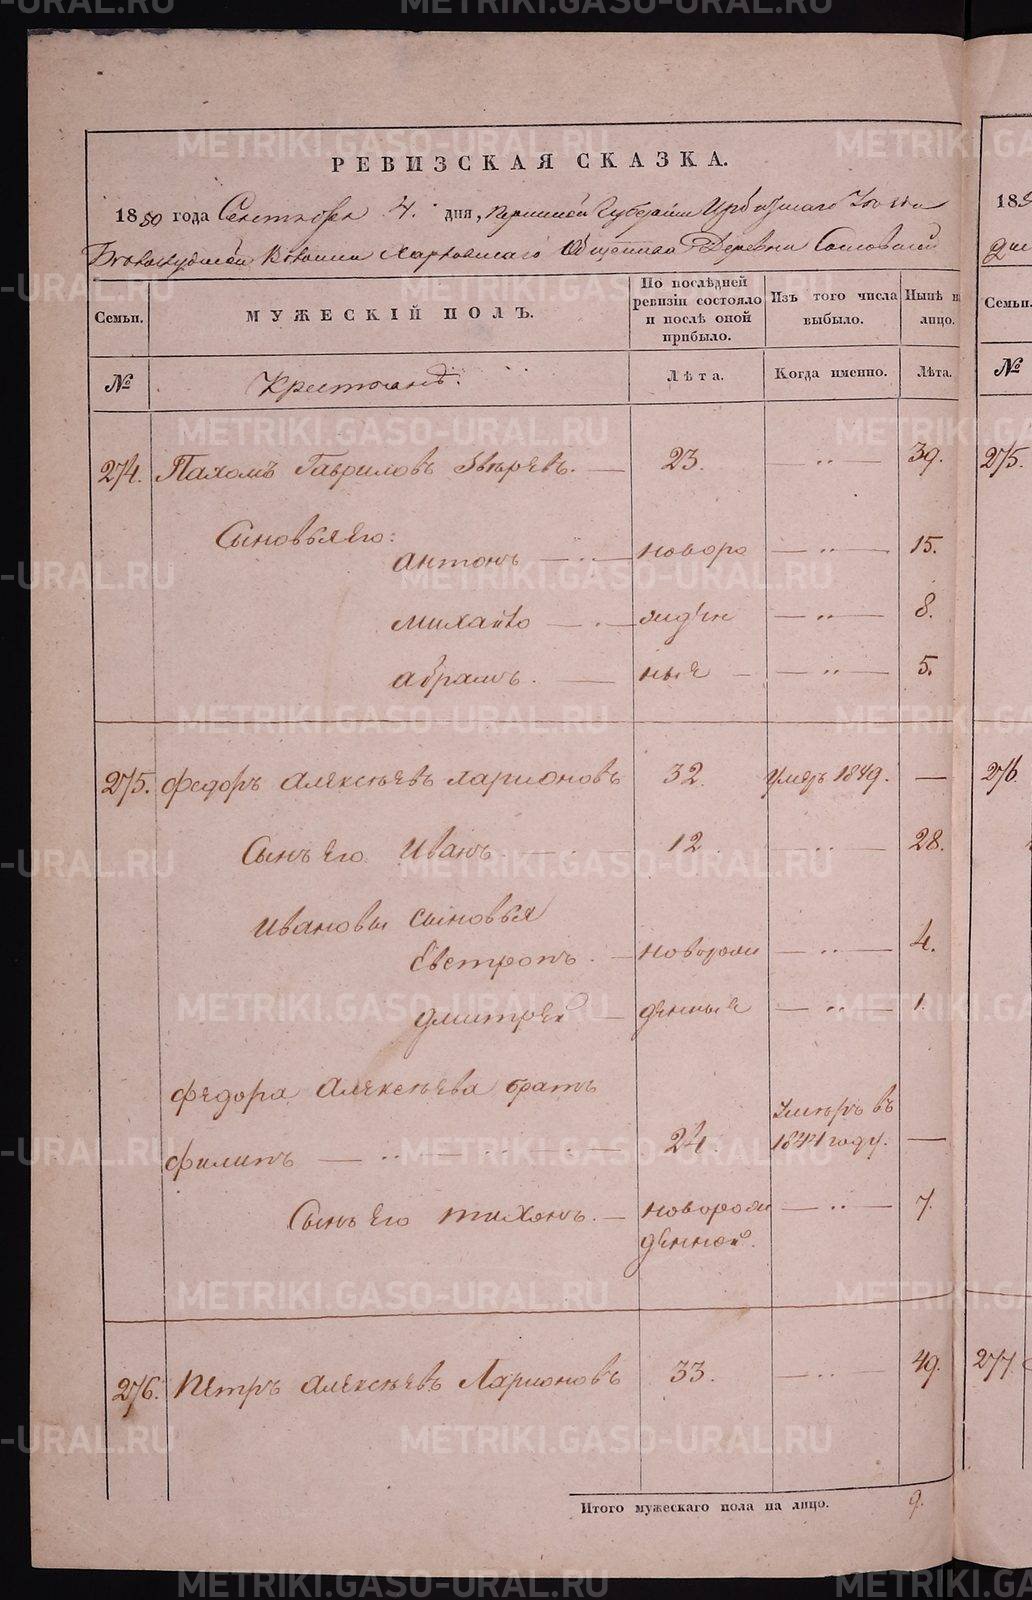 METRIKI.GASO-URAL.RU
РЕВИЗСКАЯ СКАЗКА.
1850 года Сентября 4. дня, Пермской Губернии Ирбитскаго
Волости Харловскаго Общества Деревни
Семьи.
МУЖЕСКІЙ ПОЛЪ.
По послѣдней ревизіи состояло и послѣ оной прибыло.
Изъ того числа выбыло.
Нынѣ на лицо.
Семьи.
№
Крестьянъ.
Лѣта.
Когда именно.
Лѣта.
№
274. Пахомъ Гавриловъ Звѣревъ. — 23. — " — 39. 275.
Сыновья его:
Антонъ — новоро — " — 15.
Михайло — жден — " — 8.
Абрамъ. — ные — " — 5.
275. Федоръ Алексѣевъ Ларионовъ 32. Умеръ 1849. — 276.
Сынъ его Иванъ 12 — " — 28.
Ивановы сыновья
Евстропъ. — новорож — " — 4.
Дмитрей — денные — " — 1.
Федора Алексѣева братъ
Филипъ — 24. Умеръ въ 1844 году. —
Сынъ его Тихонъ. — новорож — " — 7.
денной.
276. Петръ Алексѣевъ Ларионовъ 33. — " — 49. 277
Итого мужескаго пола на лицо. 9.